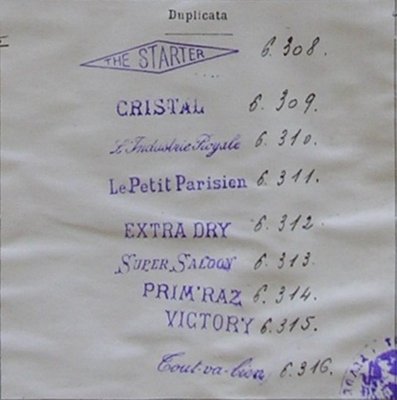 Duplicata
THE STARTER 6.308.
CRISTAL 6.309.
L'Industrie Royale 6.310.
Le Petit Parisien 6.311.
EXTRA DRY 6.312
SUPER SALOON 6.313.
PRIM'RAZ 6.314.
VICTORY 6.315.
Tout-va-bien 6.316.